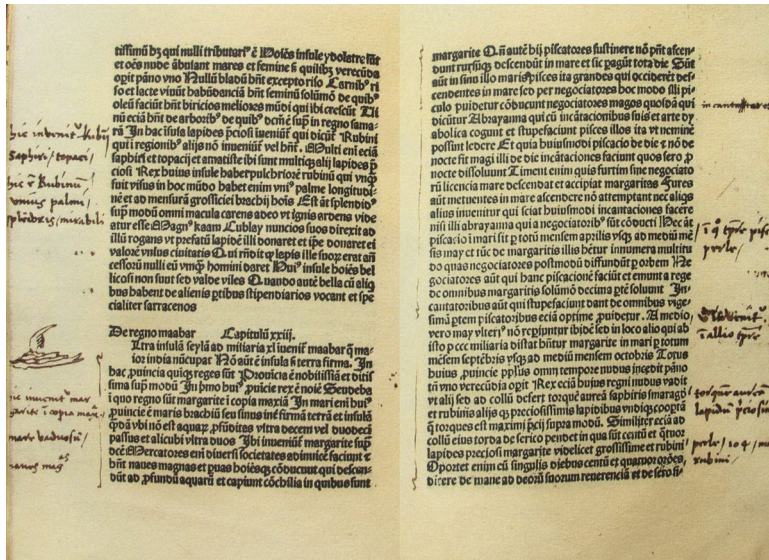 tissimū bȝ qui nulli tributari⁹ ē Hoīes insule ydolatre sūt
et oēs nude ābulant mares et femine sȝ quilibȝ verecūda
opit pāno vno Nullū bladū hn̄t excepto riso Carnib⁹ ri
so et lacte viuūt habūdanciā hn̄t seminū solūmō de quib⁹
oleū faciūt hn̄t biricios meliores mūdi qui ibi crescūt Vi
nū eciā hn̄t de arboribȝ de quibȝ dcm̄ ē sup̄ in regno sama
rā In hac insula lapides p̄ciosi iueniūt qui dicūt Rubini
qui i regionibȝ alijs nō inueniūt vel hn̄t. Multi enī eciā
saphiri et topacij et amatiste ibi sunt multiqȝ alij lapides p̄
ciosi Rex huius insule habet pulchriorē rubinū qui vnqȝ
fuit visus in hoc mūdo habet enim vni⁹ palme longitudi
nē et ad mensurā grossiciei brachij hoīs Est āt splendid⁹
sup̄ modū omni macula carens adeo vt ignis ardens vide
atur esse Magn⁹ kaam Cublay nuncios suos direxit ad
illū rogans vt prefatū lapidē illi donaret et ip̄e donaret ei
valorē vnius ciuitatis Qui rn̄dit qȝ lapis ille suoȝ erat ān
cessoȝ nulli eū vnqȝ homini daret Hui⁹ insule hoīes bel
licosi non sunt sed valde viles Quando autē bella cū aliq
bus habent de alienis p̄tibus stipendiarios vocant et spe
cialiter sarracenos
De regno maabar Capitulū xxiii.
Vltra insulā seylā ad miliaria xl iuenit⁹ maabar q̄ ma
ior india nūcupat Nō aūt ē insula sȝ terra firma. In
hac ꝓuincia quiqȝ reges sūt Prouicia ē nobilissiā et diti
sima sup̄ modū In p̄mo hui⁹ ꝓuicie rex ē noīe Sendeba
i quo regno sūt margarite i copia maxīa In mari enī hui⁹
ꝓuincie ē maris brachiū seu sinus int̄ firmā tetrā et insulā
q̄dā vbi nō est aquaȝ ꝓfūditas vltra decem vel duodecī
passus et alicubi vltra duos Ibi inueniūt margarite sup̄
dcē Mercatores enī diuersi societates adinuicē faciunt et
hn̄t naues magnas et ꝑuas hoīesqȝ cōducunt qui descen-
dūt ad ꝓfundū aquarū et capiunt cōchilia in quibus sunt
hic invenit⁹ Rubinj
saphiri / topacij /
hic ē Rubinū
vnius palmi /
splēdidus / mirabili
margarite i copia maxīa
mare vadosū /
margarite Q̄n autē hij piscatores sustinere nō pn̄t ascen-
dunt rursūqȝ descendūt in mare et sic pagūt tota die Sūt
aūt in sinu illo maris pisces ita grandes qui occiderēt des-
cendentes in mare sed per negociatores hoc modo illi pi-
culo puidetur cōducunt negociatores magos quosdā qui
dicūtur Abrayanna qui cū incātationibus suis et arte dy
abolica cogunt et stupefaciunt pisces illos ita vt neminē
possunt ledere Et quia huiusmodi piscacio de die ē nō de
nocte fit magi illi de die incātationes faciunt quos sero ꝓ
nocte dissoluunt Timent enim quis furtim sine negociato
rū licencia mare descendat et accipiat margaritas Fures
aūt metuentes in mare ascendere nō attemptant nec aliqs
alius inuenitur qui sciat huiusmodi incantaciones facere
nisi illi abrayanna qui a negociatorib⁹ sūt cōducti Hec āt
piscacio i mari sit p̄ totū mensem aprilis vsqȝ ad mediū mē
sis may et tūc de margaritis illis hētur innumera multitu
do quas negociatores postmodū diffundūt p̄ orbem Ne
gociatores aūt qui hanc piscacionē faciūt et emunt a rege
de omnibus margaritis solūmō decima p̄tē soluunt In-
cantatoribus aūt qui stupefaciunt dant de omnibus vige-
simā p̄tem piscatoribus eciā optime ꝓuidetur. A medio
vero may vlteri⁹ nō repiuntur ibidē sed in loco alio qui ab
isto p̄ ccc miliaria distat hn̄tur margarite in mari p̄ totum
mēsem septēbris vsqȝ ad mediū mensem octobris Totus
huius ꝓuincie ppl̄us omni tempore nudus incedit pāno
tn̄ vno verecūdia opit Rex eciā huius regni nudus vadit
vt alij sed ad collū defert torquē aureā saphiris smaragd̄
et rubinis alijs qȝ preciosissimis lapidibus vndiqȝ coopta
q̄ torques est maximi p̄cij supra modū. Similiter eciā ad
collū eius torda de serico pendet in qua sūt centū et q̄tuor
lapides preciosi margarite videlicet grossissime et rubini
Oportet enim eū singulis diebus centū et quatuor orōes
dicere de mane ad deorū suorum reuerenciā et de sero si-
perle /
torquē aureā
lapidū p̄ciosū
perle / 104 /
rubini /